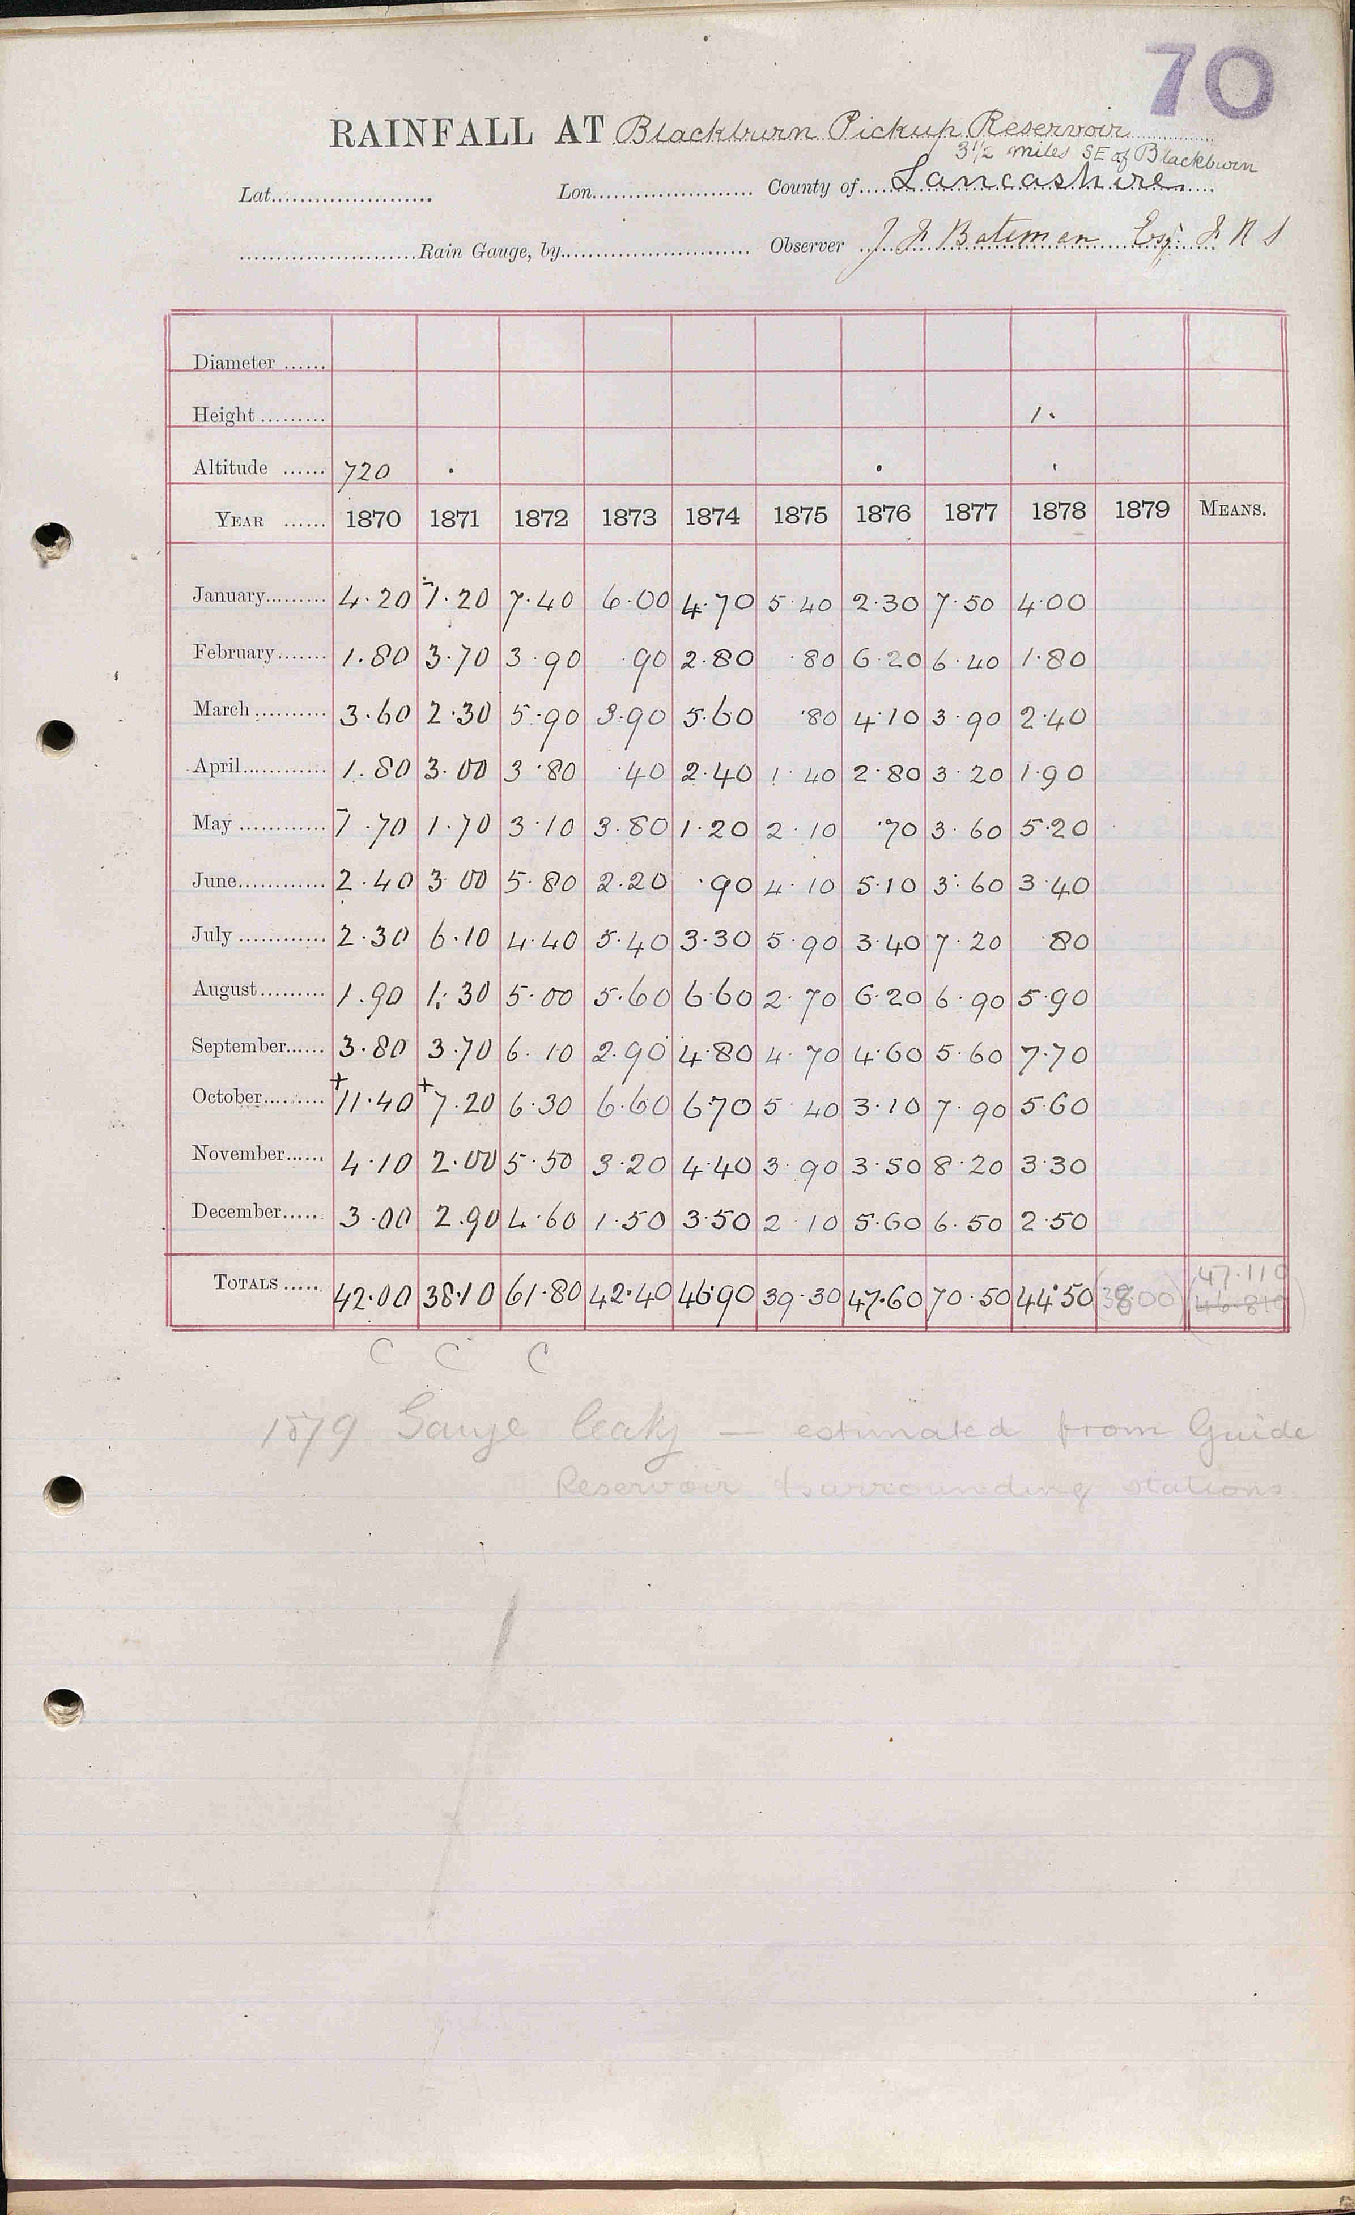 70
RAINFALL AT Blackburn Pickup Reservoir
3½ miles SE of Blackburn
Lat. Lon. County of Lancashire
Rain Gauge, by Observer J F Bateman Esq F R S
Diameter
Height 1.
Altitude 720
YEAR 1870 1871 1872 1873 1874 1875 1876 1877 1878 1879 MEANS.
January 4.20 1.20 7.40 6.00 4.70 5.40 2.30 7.50 4.00
February 1.80 3.70 3.90 .90 2.80 .80 6.20 6.40 1.80
March 3.60 2.30 5.90 3.90 5.60 .80 4.10 3.90 2.40
April 1.80 3.00 3.80 .40 2.40 1.40 2.80 3.20 1.90
May 1.70 1.70 3.10 3.80 1.20 2.10 .70 3.60 5.20
June 2.40 3.00 5.80 2.20 .90 4.10 5.10 3.60 3.40
July 2.30 6.10 4.40 5.40 3.30 5.90 3.40 7.20 .80
August 1.90 1.30 5.00 5.60 6.60 2.70 6.20 6.90 5.90
September 3.80 3.70 6.10 2.90 4.80 4.70 4.60 5.60 7.70
October +11.40 +7.20 6.30 6.60 6.70 5.40 3.10 7.90 5.60
November 4.10 2.00 5.50 3.20 4.40 3.90 3.50 8.20 3.30
December 3.00 2.90 4.60 1.50 3.50 2.10 5.60 6.50 2.50
47.110
TOTALS 42.00 38.10 61.80 42.40 46.90 39.30 47.60 70.50 44.50 (38 00) 46.810
C C C
1879 Gauge leaky — estimated from Guide
Reservoir & surrounding stations